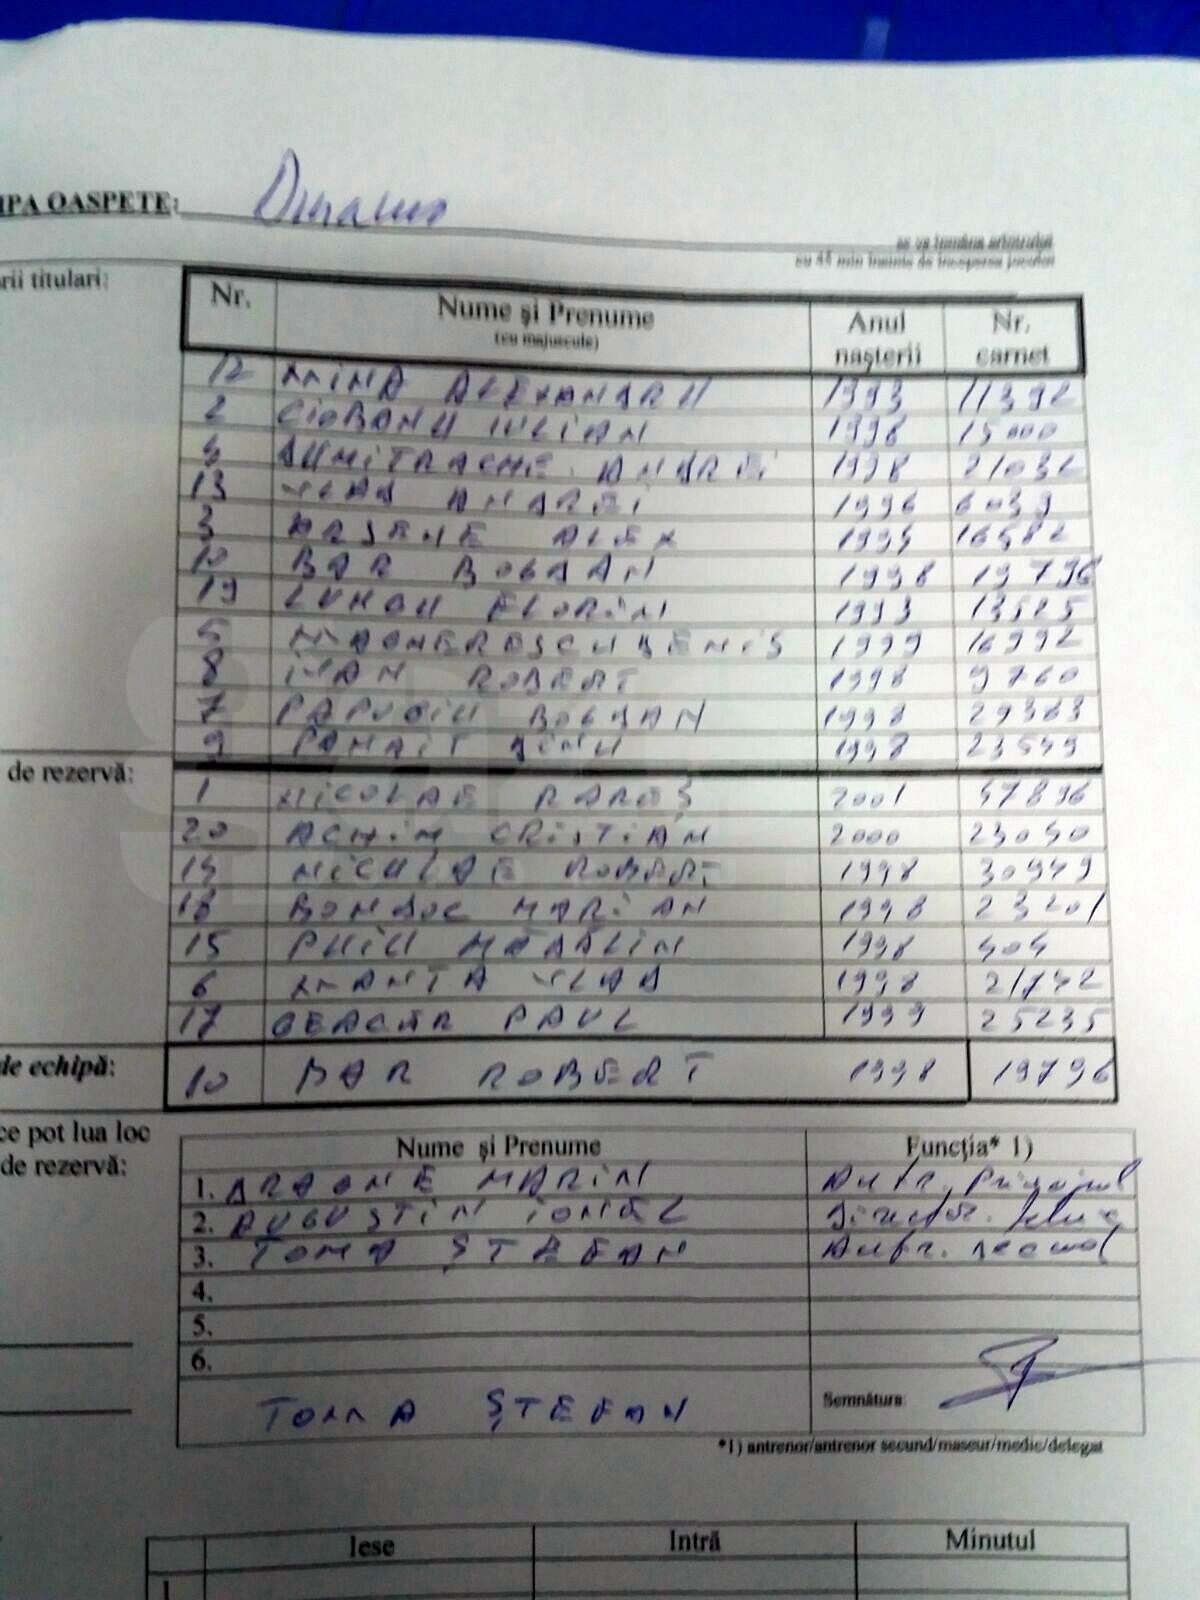 IPA OASPETE: Dinamo
se va înmâna arbitrului
cu 45 min înainte de începerea jocului
rii titulari:
Nr. Nume şi Prenume Anul naşterii Nr. carnet
(cu majuscule)
12 MINA ALEXANDRU 1993 11392
2 CIOBANU IULIAN 1998 15000
4 DUMITRACHE ANDREI 1998 21032
13 VLAD ANDREI 1996 6039
3 ARSENE ALEX 1995 16582
10 BAR BOGDAN 1998 19796
19 LUNGU FLORIN 1993 13525
5 DENIS 1999 16992
8 IVAN ROBERT 1998 9760
7 PAPUCIU BOGDAN 1998 29383
9 PANAIT DINU 1998 23549
de rezervă:
1 NICOLAE RAREŞ 2001 57896
20 ACHIM CRISTIAN 2000 23040
14 NICULAE ROBERT 1998 30949
18 BONDOC MARIAN 1998 23201
15 PUIU MĂDĂLIN 1998 404
6 MANTA VLAD 1998 21742
17 GEACĂR PAUL 1999 25235
de echipă: 10 BAR ROBERT 1998 19796
ce pot lua loc
de rezervă:
Nume şi Prenume Funcţia* 1)
1. DRAGNE MARIN Antr. Principal
2. AUGUSTIN IONEL Director
3. TOMA ŞTEFAN Antr. secund
4.
5.
6.
TOMA ŞTEFAN Semnătura
*1) antrenor/antrenor secund/maseur/medic/delegat
Iese Intră Minutul
1